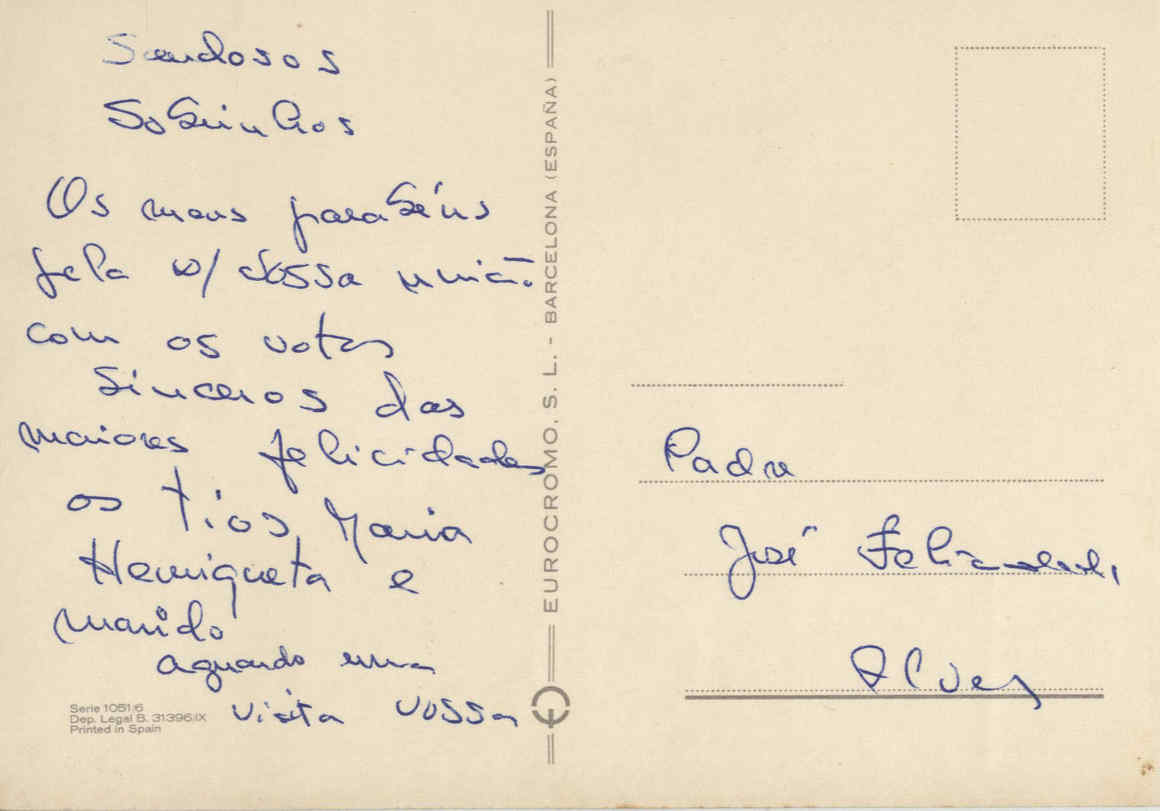 Saudosos
Sobrinhos
Os meus parabéns
pela v/ vossa união.
com os votos
sinceros das
maiores felicidades
os tios, Maria
Henriqueta e
marido
aguardo uma
visita vossa
Serie 1051/6
Dep. Legal B. 31396/IX
Printed in Spain
EUROCROMO, S. L. - BARCELONA (ESPAÑA)
Padre
José
Alves